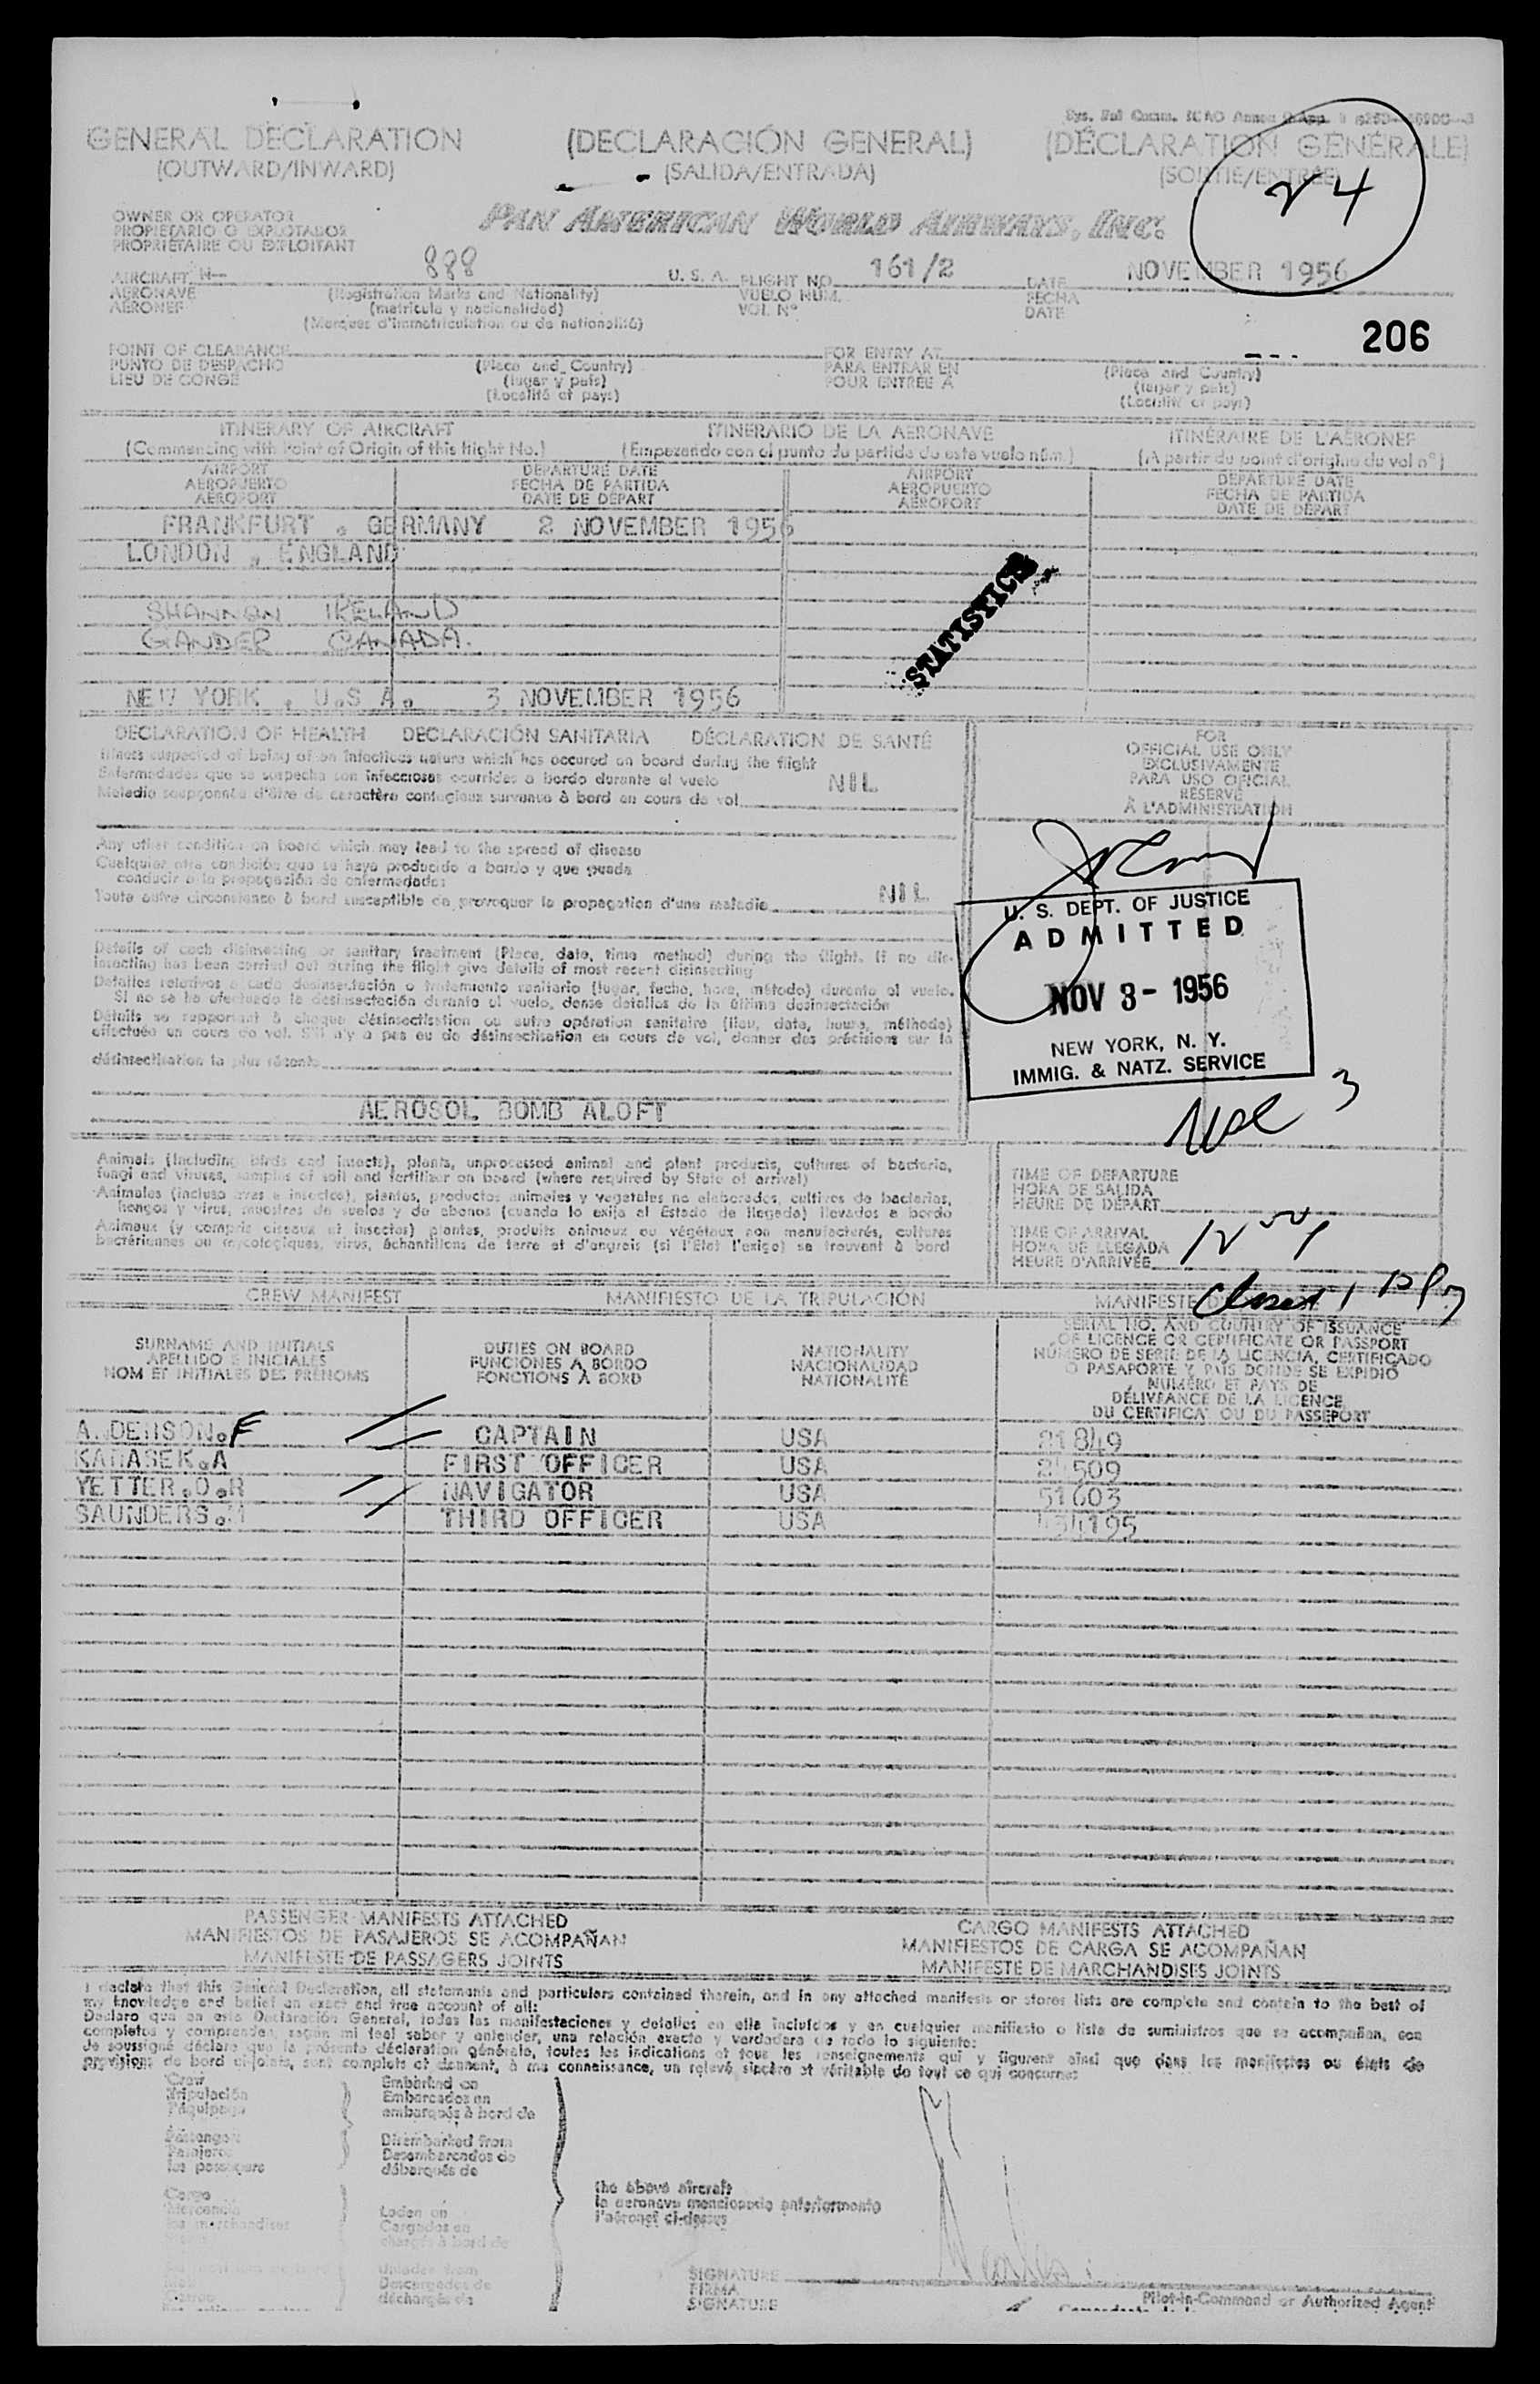 GENERAL DECLARATION (DECLARACIÓN GENERAL) (DÉCLARATION GÉNÉRALE)
(OUTWARD/INWARD) (SALIDA/ENTRADA) (SORTIE/ENTRÉE)
24
OWNER OR OPERATOR
PROPIETARIO O EXPLOTADOR
PROPRIÉTAIRE OU EXPLOITANT
PAN AMERICAN WORLD AIRWAYS, INC.
AIRCRAFT N— 888 U. S. A. FLIGHT NO. 161/2 DATE NOVEMBER 1956
AERONAVE (Registration Marks and Nationality) VUELO NUM. FECHA
AERONEF (matrícula y nacionalidad) VOL N° DATE
(Marques d'immatriculation ou de nationalité)
206
POINT OF CLEARANCE FOR ENTRY AT
PUNTO DE DESPACHO (Place and Country) PARA ENTRAR EN (Place and Country)
LIEU DE CONGÉ (lugar y país) POUR ENTRÉE A (lugar y país)
(Localité et pays) (Localité et pays)
ITINERARY OF AIRCRAFT ITINERARIO DE LA AERONAVE ITINÉRAIRE DE L'AÉRONEF
(Commencing with Point of Origin of this flight No.) (Empezando con el punto de partida de este vuelo núm.) (A partir du point d'origine du vol n°)
AIRPORT DEPARTURE DATE AIRPORT DEPARTURE DATE
AEROPUERTO FECHA DE PARTIDA AEROPUERTO FECHA DE PARTIDA
AÉROPORT DATE DE DÉPART AÉROPORT DATE DE DÉPART
FRANKFURT , GERMANY 2 NOVEMBER 1956
LONDON , ENGLAND
STATISTICS
SHANNON IRELAND
GANDER CANADA.
NEW YORK , U.S.A. 3 NOVEMBER 1956
DECLARATION OF HEALTH DECLARACIÓN SANITARIA DÉCLARATION DE SANTÉ
Illness suspected of being of an infectious nature which has occured on board during the flight
Enfermedades que se sospecha son infecciosas ocurridas a bordo durante el vuelo NIL
Maladie soupçonnée d'être de caractère contagieux survenue à bord en cours de vol
Any other condition on board which may lead to the spread of disease
Cualquier otra condición que se haya producido a bordo y que pueda
conducir a la propagación de enfermedades
Toute autre circonstance à bord susceptible de provoquer la propagation d'une maladie NIL
Details of each disinsecting or sanitary treatment (Place, date, time method) during the flight. If no dis-
insecting has been carried out during the flight give details of most recent disinsecting
Detalles relativos a cada desinsectación o tratamiento sanitario (lugar, fecha, hora, método) durante el vuelo.
Si no se ha efectuado la desinsectación durante el vuelo, dense detalles de la última desinsectación
Détails se rapportant à chaque désinsectisation ou autre opération sanitaire (lieu, date, heure, méthode)
effectuée en cours de vol. S'il n'y a pas eu de désinsectisation en cours de vol, donner des précisions sur la
désinsectisation la plus récente
AEROSOL BOMB ALOFT
FOR
OFFICIAL USE ONLY
EXCLUSIVAMENTE
PARA USO OFICIAL
RÉSERVÉ
À L'ADMINISTRATION
U. S. DEPT. OF JUSTICE
ADMITTED
NOV 3 - 1956
NEW YORK, N. Y.
IMMIG. & NATZ. SERVICE
3
Animals (including birds and insects), plants, unprocessed animal and plant products, cultures of bacteria,
fungi and viruses, samples of soil and fertilizer on board (where required by State of arrival)
Animales (incluso aves e insectos), plantas, productos animales y vegetales no elaborados, cultivos de bacterias,
hongos y virus, muestras de suelos y de abonos (cuando lo exija el Estado de llegada) llevados a bordo
Animaux (y compris oiseaux et insectes) plantes, produits animaux ou végétaux non manufacturés, cultures
bactériennes ou mycologiques, virus, échantillons de terre et d'engrais (si l'État l'exige) se trouvant à bord
TIME OF DEPARTURE
HORA DE SALIDA
HEURE DE DÉPART
TIME OF ARRIVAL
HORA DE LLEGADA
HEURE D'ARRIVÉE
Closed
CREW MANIFEST MANIFIESTO DE LA TRIPULACIÓN MANIFESTE
SURNAME AND INITIALS
APELLIDO E INICIALES
NOM ET INITIALES DES PRÉNOMS
DUTIES ON BOARD
FUNCIONES A BORDO
FONCTIONS À BORD
NATIONALITY
NACIONALIDAD
NATIONALITÉ
SERIAL NO. AND COUNTRY OF ISSUANCE
OF LICENCE OR CERTIFICATE OR PASSPORT
NÚMERO DE SERIE DE LA LICENCIA, CERTIFICADO
O PASAPORTE Y PAÍS DONDE SE EXPIDIÓ
NUMÉRO ET PAYS DE
DÉLIVRANCE DE LA LICENCE
DU CERTIFICAT OU DU PASSEPORT
ANDERSON.F CAPTAIN USA 21849
KARASEK.A FIRST OFFICER USA
YETTER.D.R NAVIGATOR USA 51603
SAUNDERS.M THIRD OFFICER USA 434195
PASSENGER MANIFESTS ATTACHED CARGO MANIFESTS ATTACHED
MANIFIESTOS DE PASAJEROS SE ACOMPAÑAN MANIFIESTOS DE CARGA SE ACOMPAÑAN
MANIFESTE DE PASSAGERS JOINTS MANIFESTE DE MARCHANDISES JOINTS
I declare that this General Declaration, all statements and particulars contained therein, and in any attached manifests or stores lists are complete and contain to the best of
my knowledge and belief an exact and true account of all:
Declaro que en esta Declaración General, todas las manifestaciones y detalles en ella incluídos y en cualquier manifiesto o lista de suministros que se acompañan, son
completos y comprenden, según mi leal saber y entender, una relación exacta y verdadera de todo lo siguiente:
Je soussigné déclare que la présente déclaration générale, toutes les indications et tous les renseignements qui y figurent ainsi que dans les manifestes ou états de
provisions de bord ci-joints, sont complets et donnent, à ma connaissance, un relevé sincère et véritable de tout ce qui concerne:
Crew Embarked on
Tripulación Embarcados en
l'équipage embarqués à bord de
Passengers Disembarked from
Pasajeros Desembarcados de
les passagers débarqués de
the above aircraft
la aeronave mencionada anteriormente
l'aéronef ci-dessus
Cargo Laden on
Mercancía Cargados en
les marchandises chargés à bord de
Unladen from
Descargados de
déchargés de
SIGNATURE
FIRMA
SIGNATURE
Pilot-in-Command or Authorized Agent